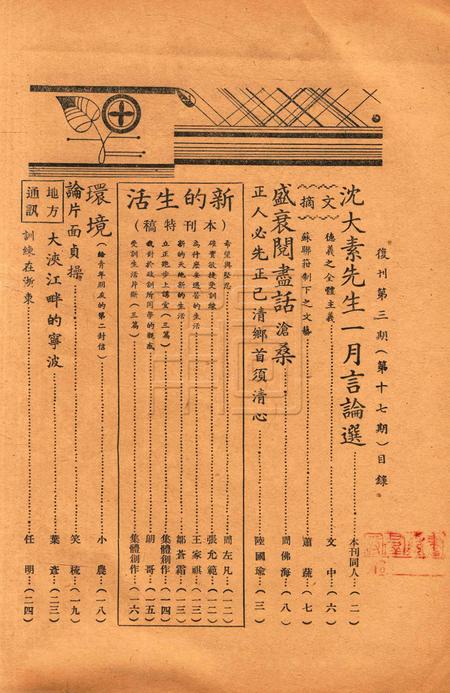 復刊第三期(第十七期)目錄
沈大素先生一月言論選……本刊同人(二)
文摘
德義之全體主義……文中(六)
蘇聯箝制下之文藝……蕭蔬(七)
盛衰閱盡話滄桑……周佛海(八)
正人必先正己清鄉首須清心……陸國瑜(三)
新的生活
(本刊特稿)
希望與堅忍……周左凡(一二)
確實敏捷受訓練……張允範(一二)
為什麼要過苦的生活……王家祺(一三)
新的天地新的生活……鄒蒼霜(一三)
立正跑步上講堂(三篇)……集體創作(一四)
我對於政訓所同學的觀感……胡哥(一五)
受訓生活片斷(三篇)……集體創作(一六)
環境(給青年朋友的第二封信)……小農(一八)
論片面貞操……笑梳(一九)
地方通訊
大浹江畔的寧波……葉產(二三)
訓練在浙東……任明(二四)